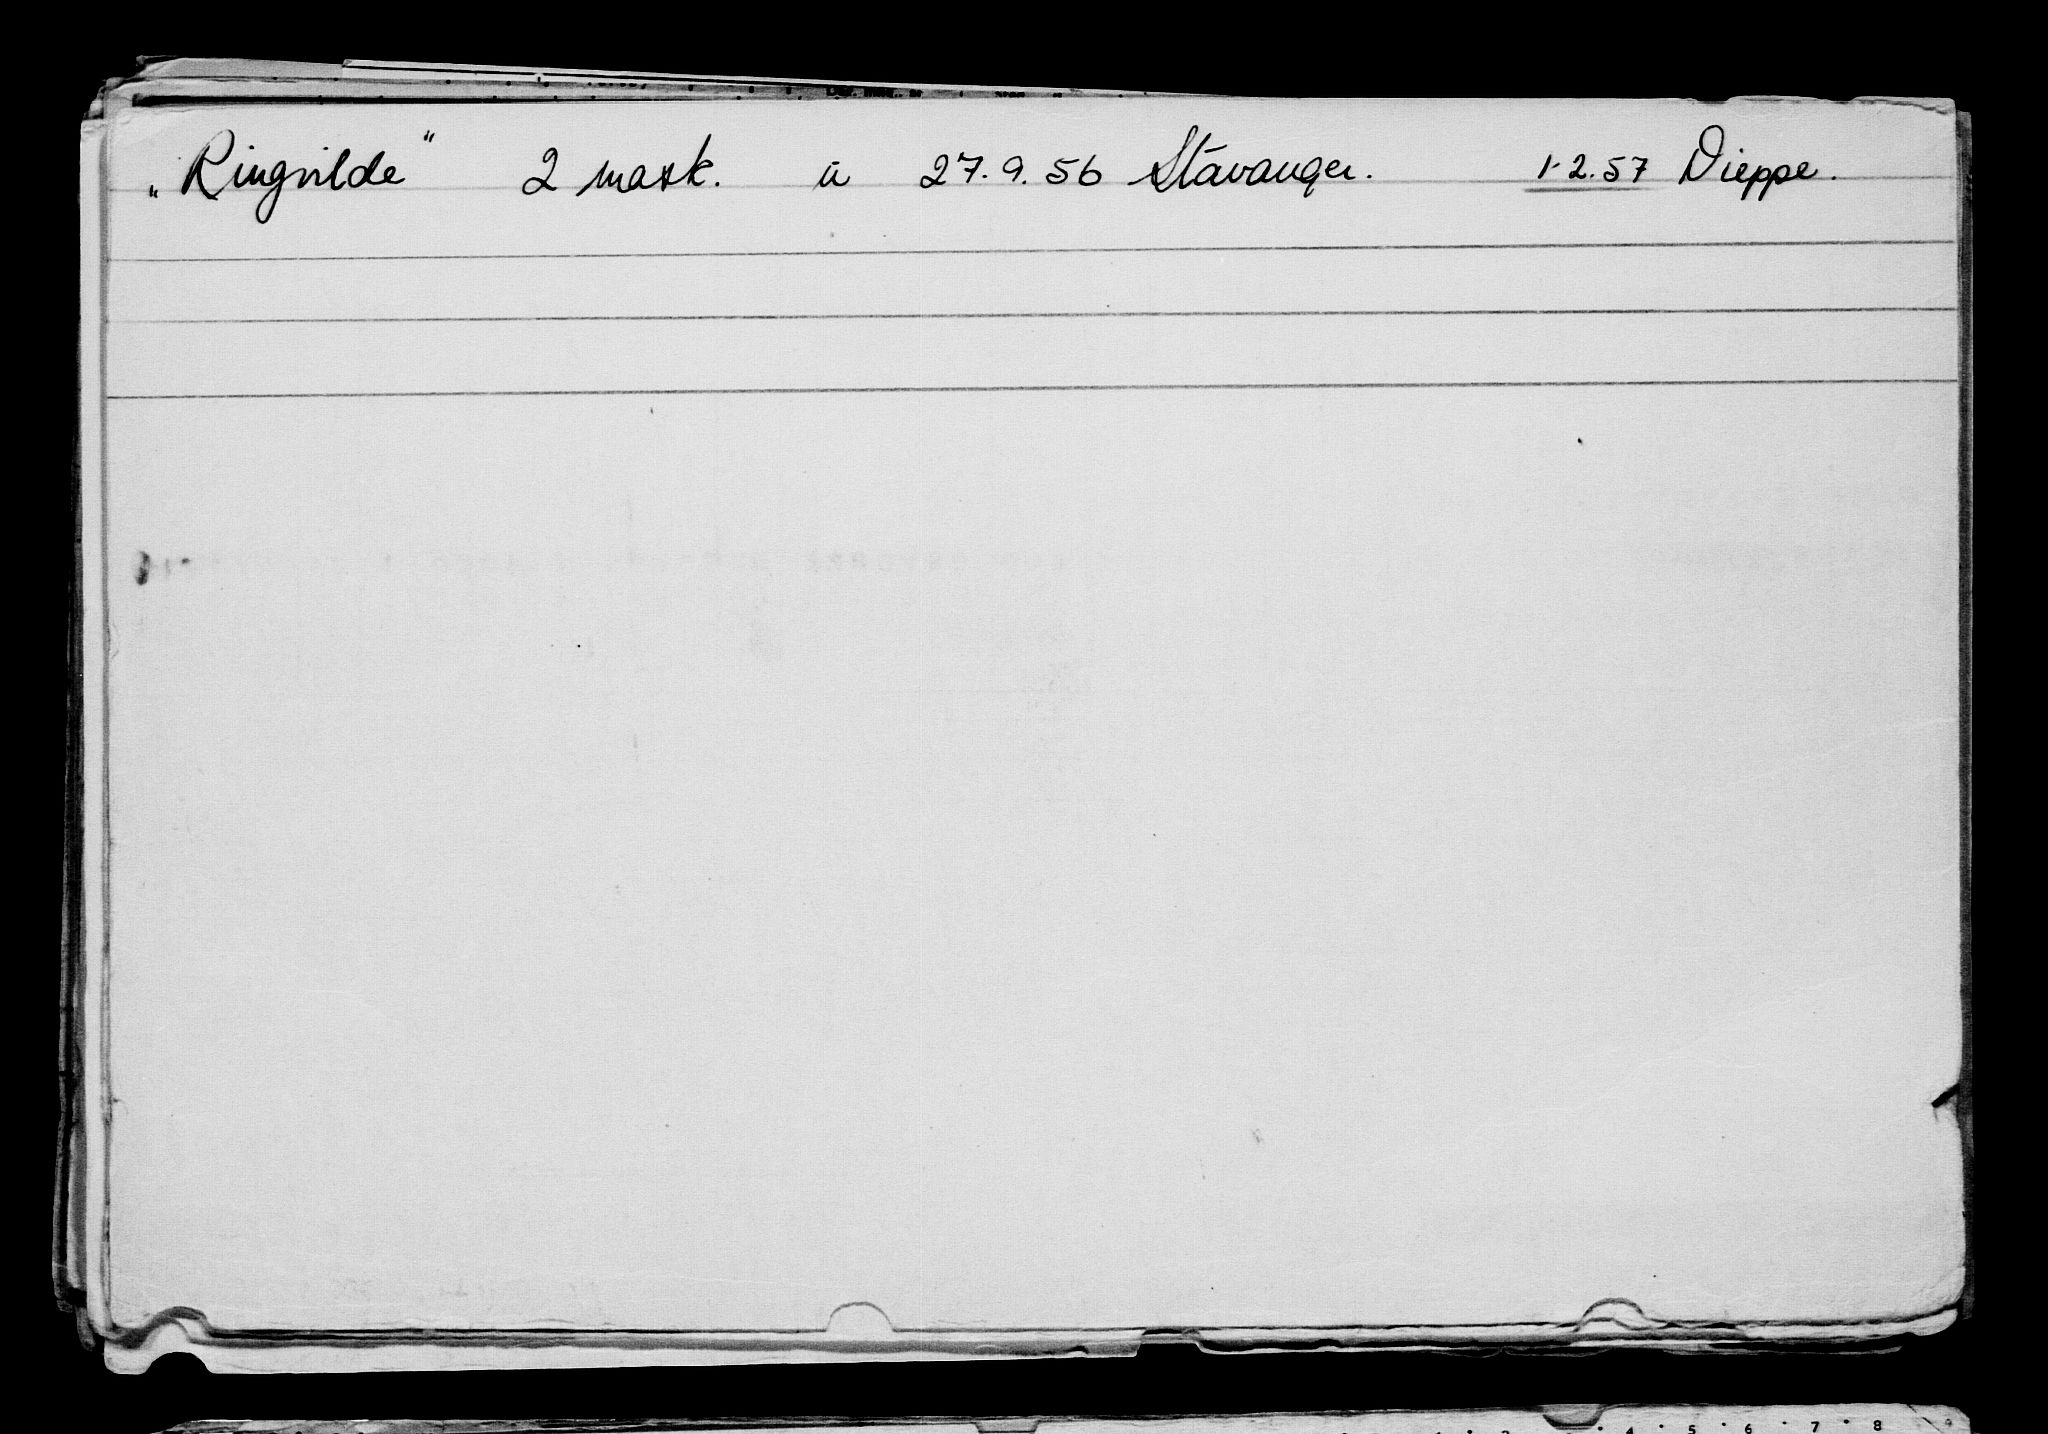 „Ringvilde“ 2 mask. u 27.9.56 Stavanger. 1-2.57 Dieppe.
4 5 6 7 8 9